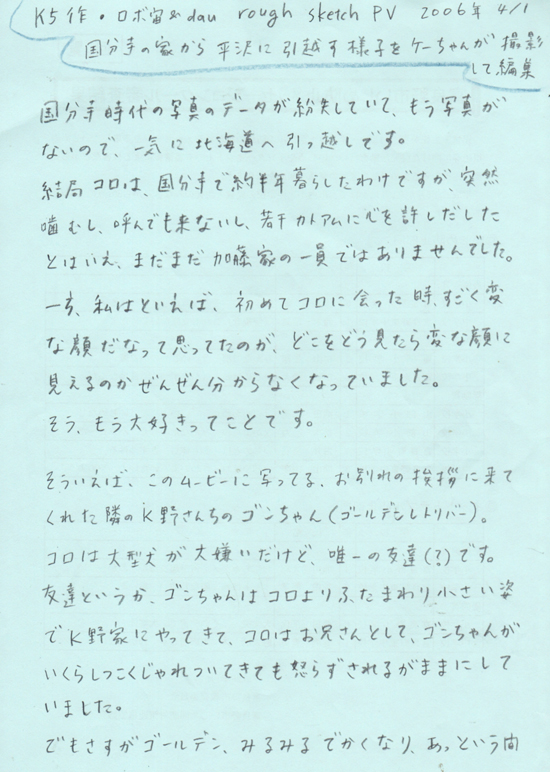 K5作・ロボ宙&dau rough sketch PV 2006年 4/1
国分寺の家から平沢に引越す様子をケーちゃんが撮影
して編集
国分寺時代の写真のデータが紛失していて、もう写真が
ないので、一気に北海道へ引っ越しです。
結局コロは、国分寺で約半年暮らしたわけですが、突然
噛むし、呼んでも来ないし、若干カトアムに心を許しだした
とはいえ、まだまだ加藤家の一員ではありませんでした。
一方、私はといえば、初めてコロに会った時、すごく変
な顔だなって思ってたのが、どこをどう見たら変な顔に
見えるのかぜんぜん分からなくなっていました。
そう、もう大好きってことです。
そういえば、このムービーに写ってる、お別れの挨拶に来て
くれた隣のK野さんちのゴンちゃん(ゴールデンレトリバー)。
コロは大型犬が大嫌いだけど、唯一の友達(?)です。
友達というか、ゴンちゃんはコロよりふたまわり小さい姿
でK野家にやってきて、コロはお兄さんとして、ゴンちゃんが
いくらしつこくじゃれついてきても怒らずされるがままにして
いました。
でもさすがゴールデン、みるみるでかくなり、あっという間